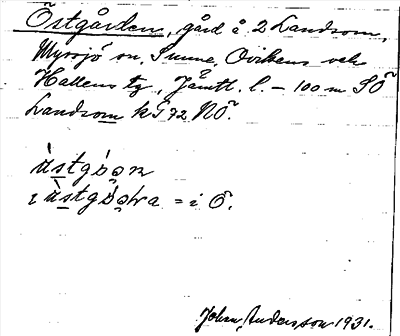 Östgården, gård å 2 Landsom,
Myssjö sn, Sunne, Ovikens och
Hallens tg, Jämtl. l. – 100 m SÖ
Landsom kS 72 NÖ.
= i Ö.
John Andersson 1931.